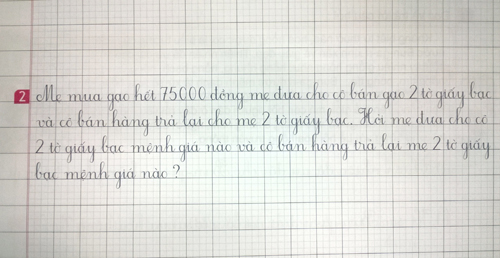 2 Mẹ mua gạo hết 75000 đồng mẹ đưa cho cô bán gạo 2 tờ giấy bạc
và cô bán hàng trả lại cho mẹ 2 tờ giấy bạc. Hỏi mẹ đưa cho cô
2 tờ giấy bạc mệnh giá nào và cô bán hàng trả lại mẹ 2 tờ giấy
bạc mệnh giá nào ?